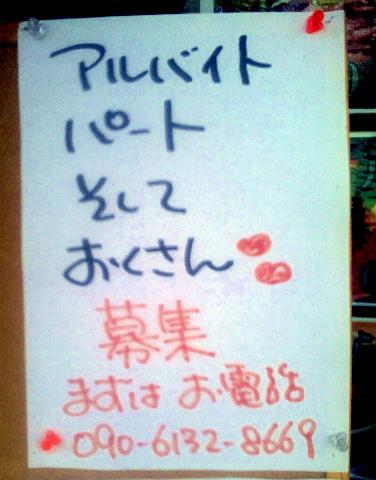 アルバイト
パート
そして
おくさん
募集
まずは お電話
090-6132-8669